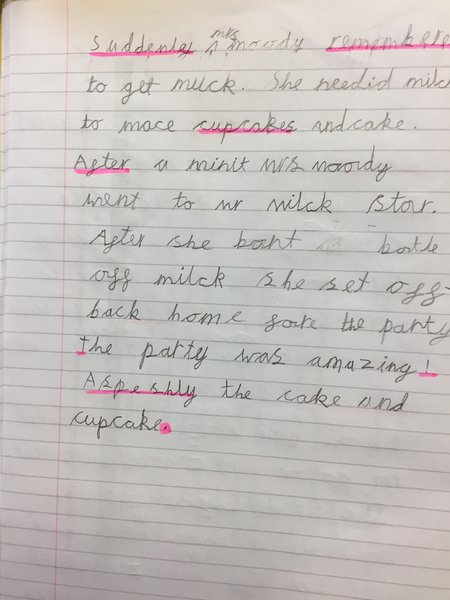 Suddenley mrs moody rememmbere
to get milck. She needid milc
to mace cupcakes and cake.
After a minit mrs moordy
went to mr milck stor.
After she bort botle
off milck she set off
back home fore the party
The party was amazing!
Aspeshly the cake and
cupcake.